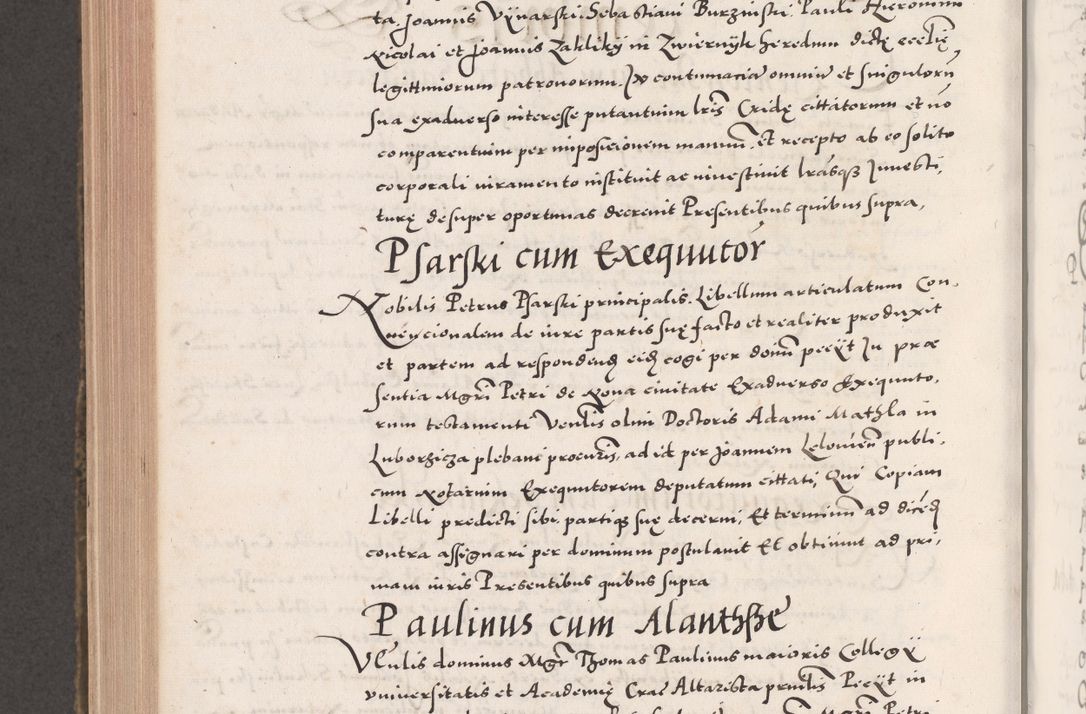 ta. Joannis Vÿnarski. Sebastiani Burzinski. Pauli Hieronimi
Nicolai et Joannis Zakliky in Zwiernyk heredum dictę ecclię
legittimorum patronorum. In contumaciā omniū et singulorū
sua exadverso interesse putantium lris Cridę cittatorum et nō
comparentium per imposicionem manuū. Et recepto ab eo solito
corporali iuramento instituit ac investivit lrasqȝ Investi,
turę desuper oportunas decrevit Presentibus quibus supra,
Psarski cum Exequutor
Nobilis Petrus Psarski principalis. Libellum articulatum Con,
vencionalem de iure partis suę facto et realiter produxit
et partem ad respondend eid cogi per domū peciit In præ
sentia Mgri Petri de Nova civitate Exadverso Exequuto,
rum testamenti Venlis olim Doctoris Adami Mathla in
Luborzicza plebani procuris, ad id per Joannem Lelovien publi,
cum Notarium Exequutorem deputatum cittati, Qui Copiam
Libelli predicti sibi partiqȝ suę decerni, Et terminū ad dicēd
contra assignari per dominum postulavit Et obtinuit ad pri,
mam iuris Presentibus quibus supra
Paulinus cum Alanthsse
Venlis dominus Mgr Thomas Paulinus maioris Collegÿ
vniuersitatis et Academię Crac Altarista prncilis Peciit in
Mgri Petri